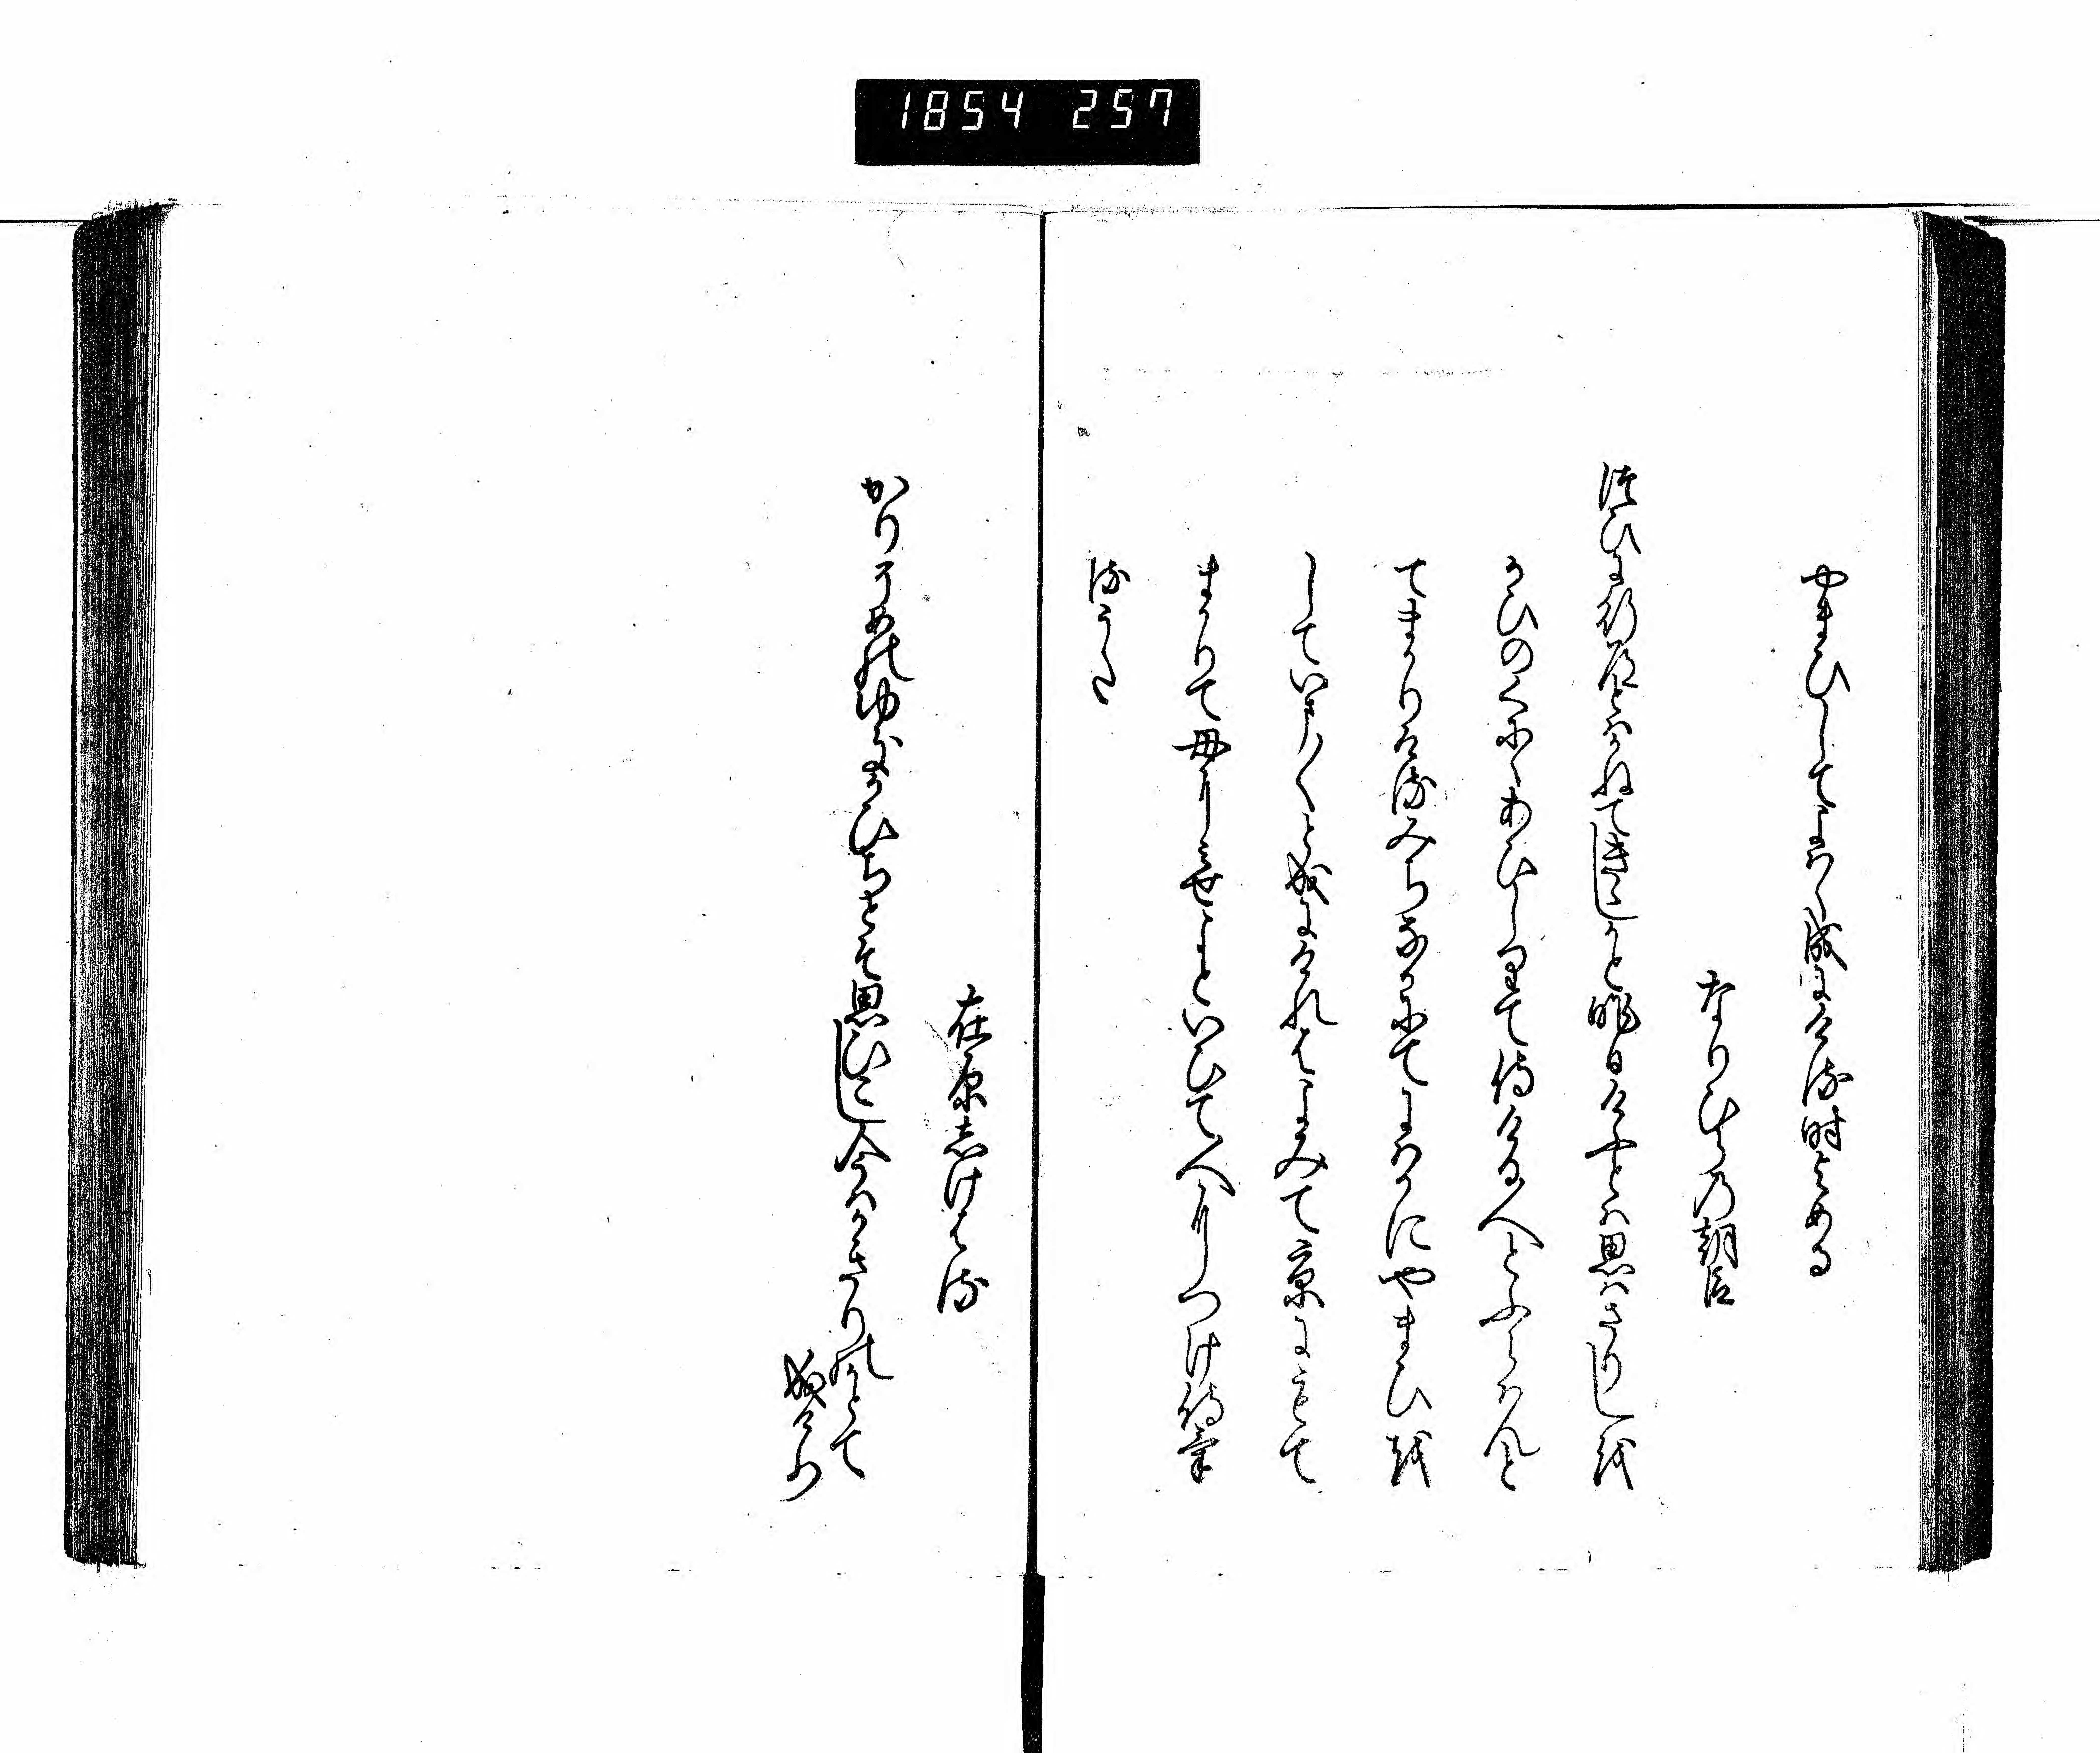 1854 257
やまひしてよはく成にける時よめる
なりひらの朝臣
つひに行道とはかねてきゝしかと昨日けふとは思はさりしを
かひのくにゝあひしりて侍ける人とふらはんと
てまかりける みちなかにてにはかにやまひを
していま〱と成にけれはよみて京にもて
まかりて母に見せよといひて人につけ侍け
るうた
在原しけはる
かりそめのゆきかひちとそ思ひこし今はかきりのかとて
成けり